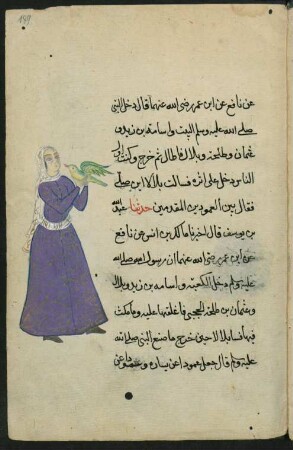 149
عن نافع عن ابن عمر رضي الله عنهما قال دخل النبي
صلى الله عليه وسلم البيت واسامة بن زيد و
عثمان بن طلحة وبلال فاطال ثم خرج وكنت اول
الناس دخل على اثره فسالت بلالا اين صلى
فقال بين العمودين المقدمين حدثنا عبد الله
بن يوسف قال اخبرنا مالك بن انس عن نافع
عن ابن عمر رضي الله عنهما ان رسول الله صلى الله
عليه وسلم دخل الكعبة واسامة بن زيد وبلال
وعثمان بن طلحة الحجبي فاغلقها عليه ومكث
فيها فسالت بلالا حين خرج ما صنع النبي صلى الله
عليه وسلم قال جعل عمودا عن يساره وعمودا عن